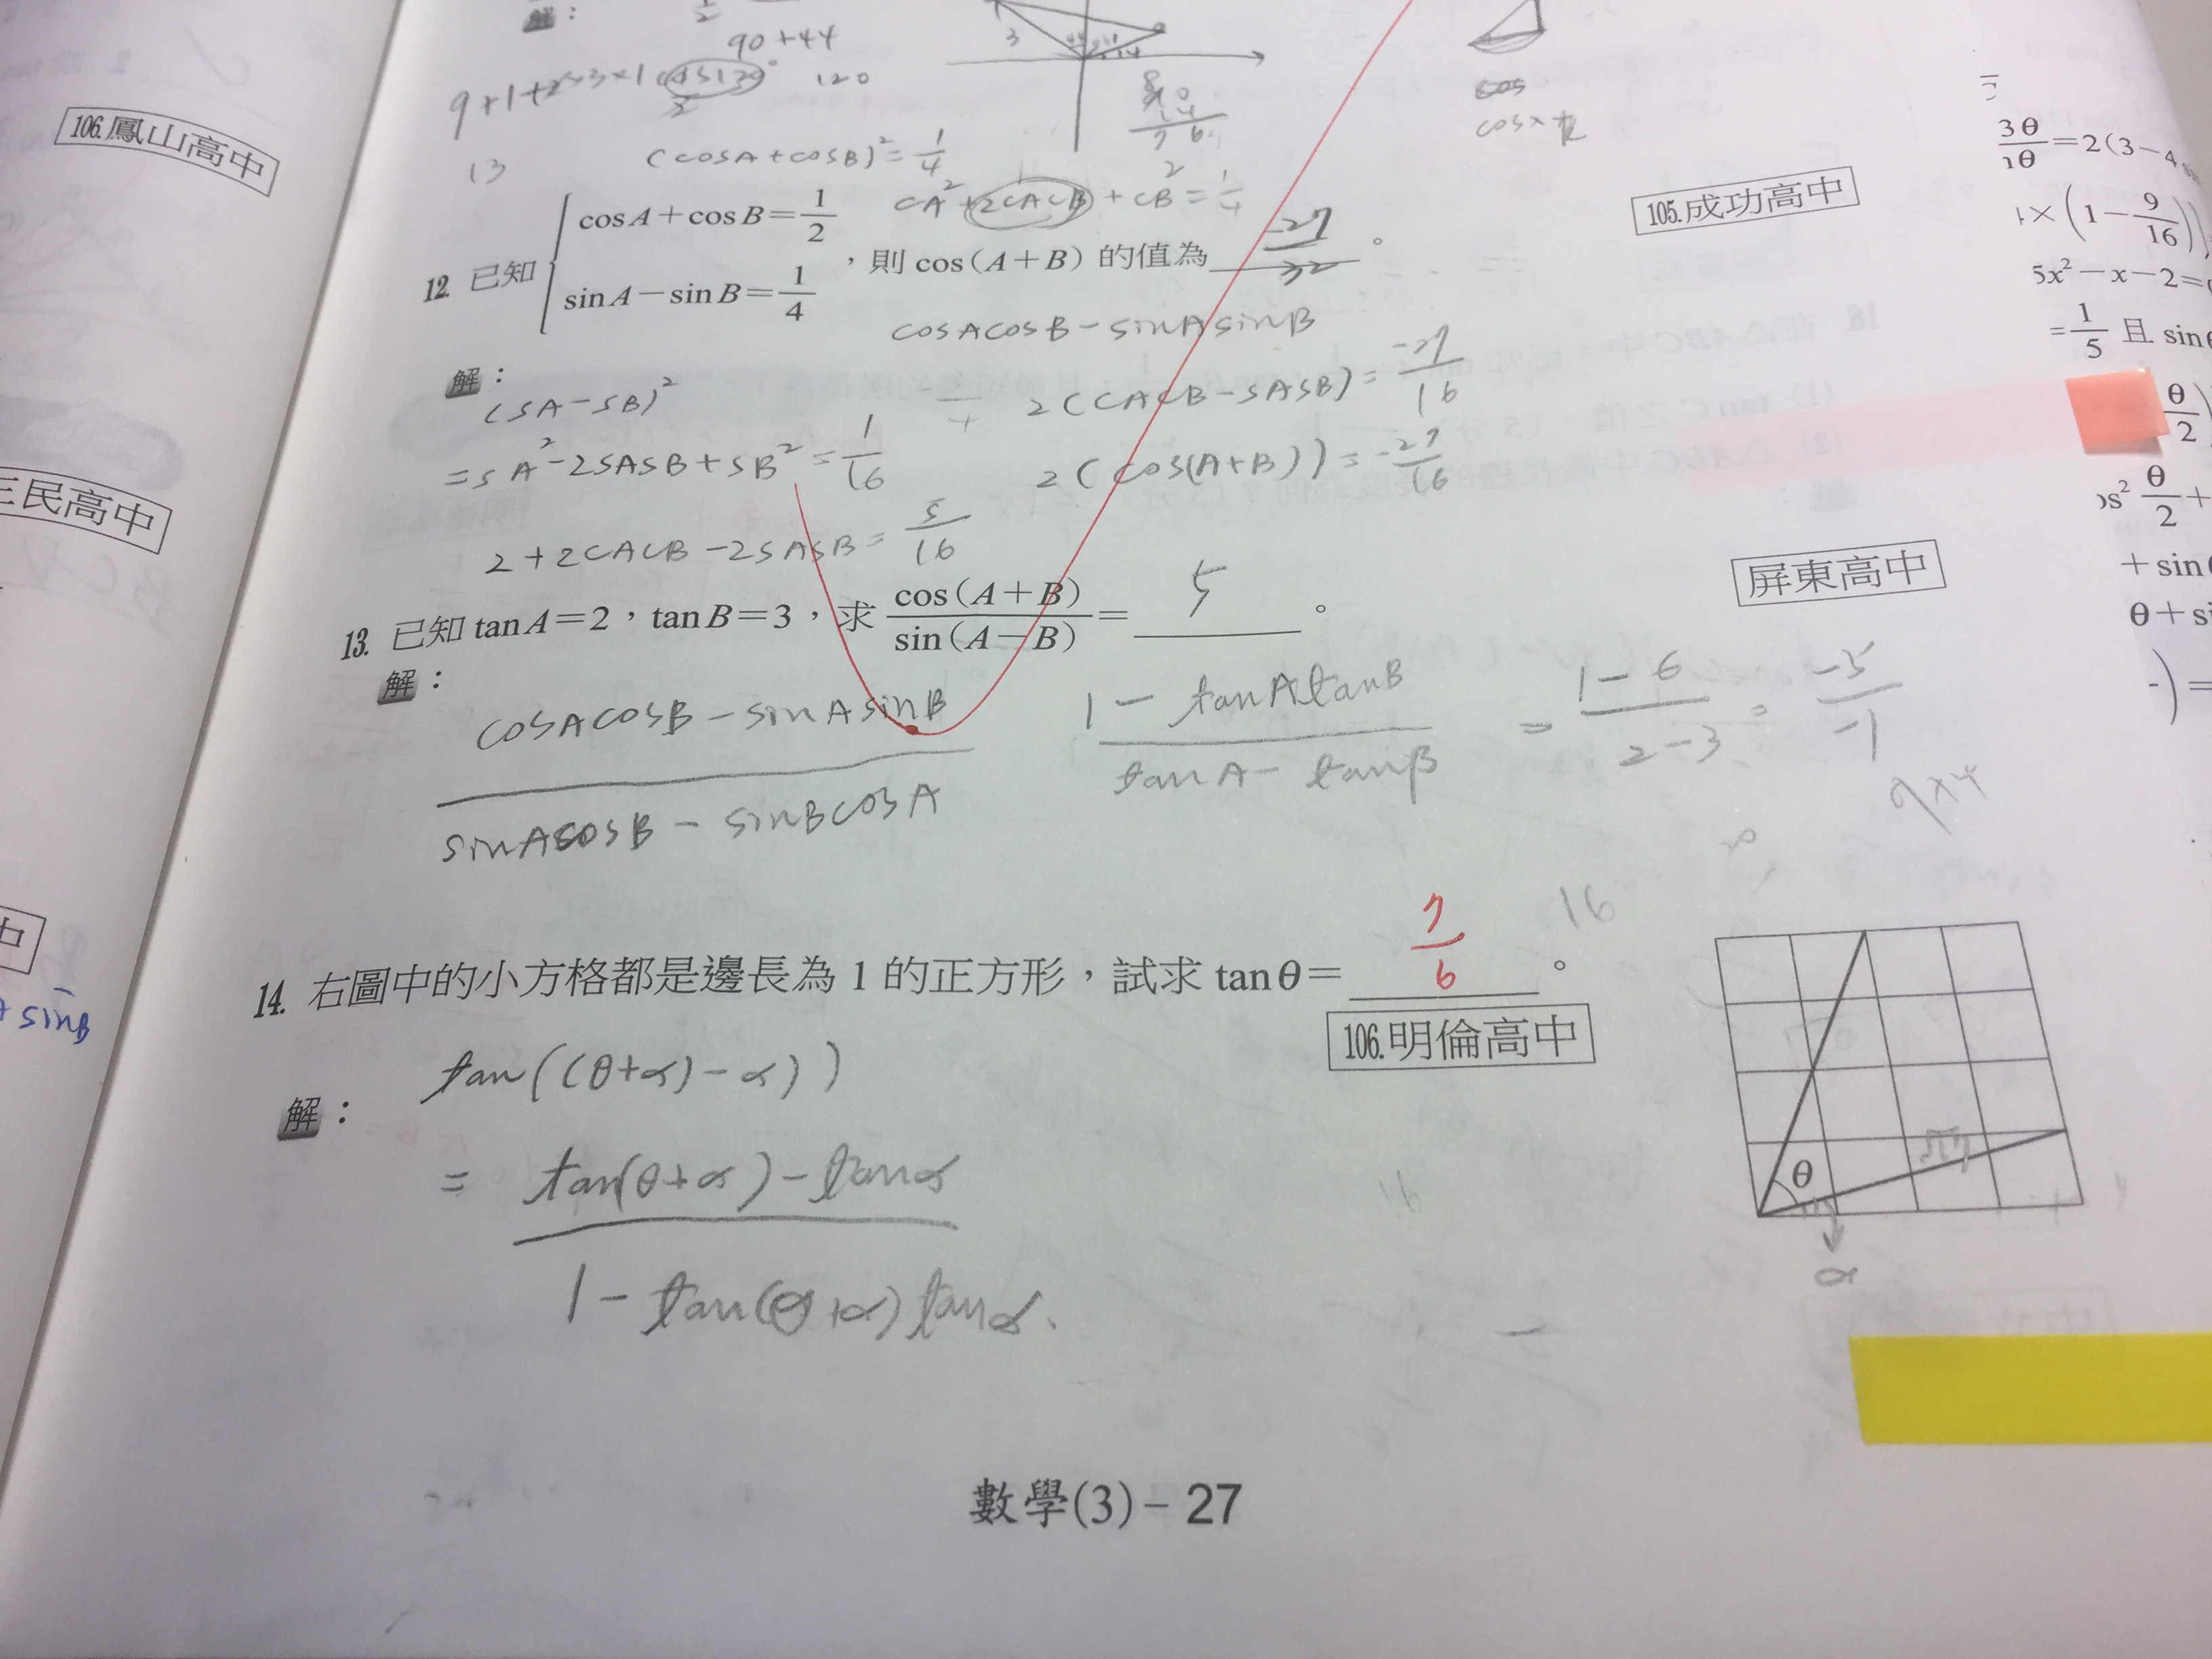 解：
90+44
120
3
106.鳳山高中
13
(cosA+cosB)²=1/4
cA²+2cAcB+cB²=1/4
105.成功高中
12. 已知 { cosA+cosB=1/2
sinA−sinB=1/4 ，則 cos(A+B) 的值為 -27/32 。
cosAcosB−sinAsinB
解：
(sA−sB)²
2(cAcB−sAsB)=-27/16
=sA²−2sAsB+sB²=1/16
2(cos(A+B))=-27/16
2+2cAcB−2sAsB=5/16
三民高中
屏東高中
13. 已知 tanA=2，tanB=3，求 cos(A+B)/sin(A−B)= 5 。
解：
cosAcosB−sinAsinB
sinAcosB−sinBcosA
1−tanAtanB
tanA−tanB
= 1−6/2−3 = −5/−1
9×4
16
14. 右圖中的小方格都是邊長為 1 的正方形，試求 tanθ= 7/6 。
106.明倫高中
解：
tan((θ+α)−α))
= tan(θ+α)−tanα
1−tan(θ+α)tanα.
θ
√17
α
數學(3)−27
中
+sinB
3θ
=2(3−4
×(1−9/16)
5x²−x−2=
=1/5 且 sin
θ/2
θ/2+
+sin
θ+si